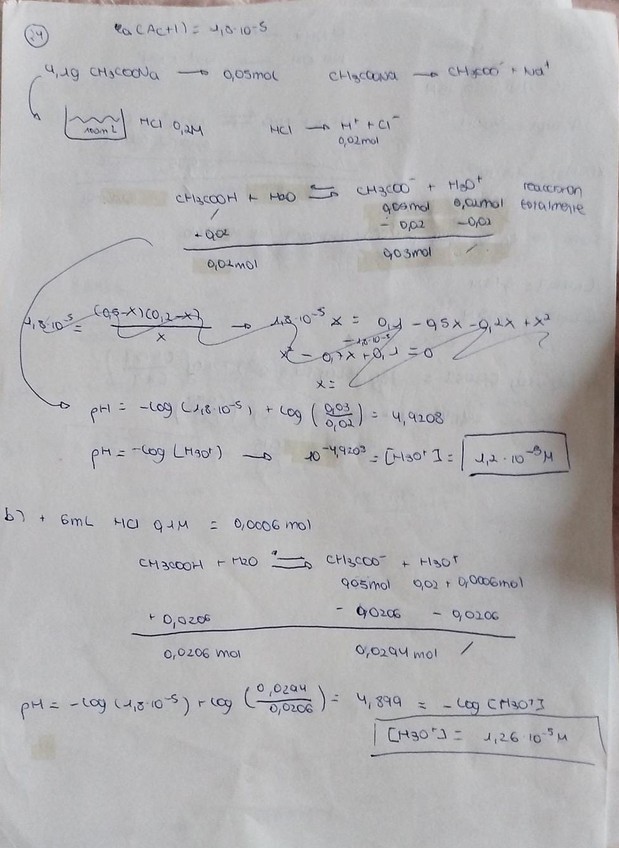 24
Ka(Ac+1) = 1,8·10-5
4,1g CH3COONa → 0,05mol CH3COONa → CH3COO- + Na+
100mL HCl 0,2M HCl → H+ + Cl-
0,02mol
CH3COOH + H2O ⇌ CH3COO- + H3O+ reaccionan
/ 0,05mol 0,02mol totalmente
+0,02 - 0,02 -0,02
0,02mol 0,03mol /
1,8·10-5 = (0,5-x)(0,2-x) / x → 1,8·10-5 x = 0,1 - 0,5x - 0,2x + x2
-1,8·10-5
x2 - 0,7x + 0,1 = 0
x =
pH = -log(1,8·10-5) + log (0,03/0,02) = 4,9208
pH = -log [H3O+] → 10-4,9208 = [H3O+] = 1,2·10-5M
b) + 6mL HCl 0,1M = 0,0006 mol
CH3COOH + H2O ⇌ CH3COO- + H3O+
0,05mol 0,02 + 0,0006mol
+ 0,0206 - 0,0206 - 0,0206
0,0206 mol 0,0294 mol /
pH = -log(1,8·10-5) + log (0,0294/0,0206) = 4,899 = -log [H3O+]
[H3O+] = 1,26·10-5M